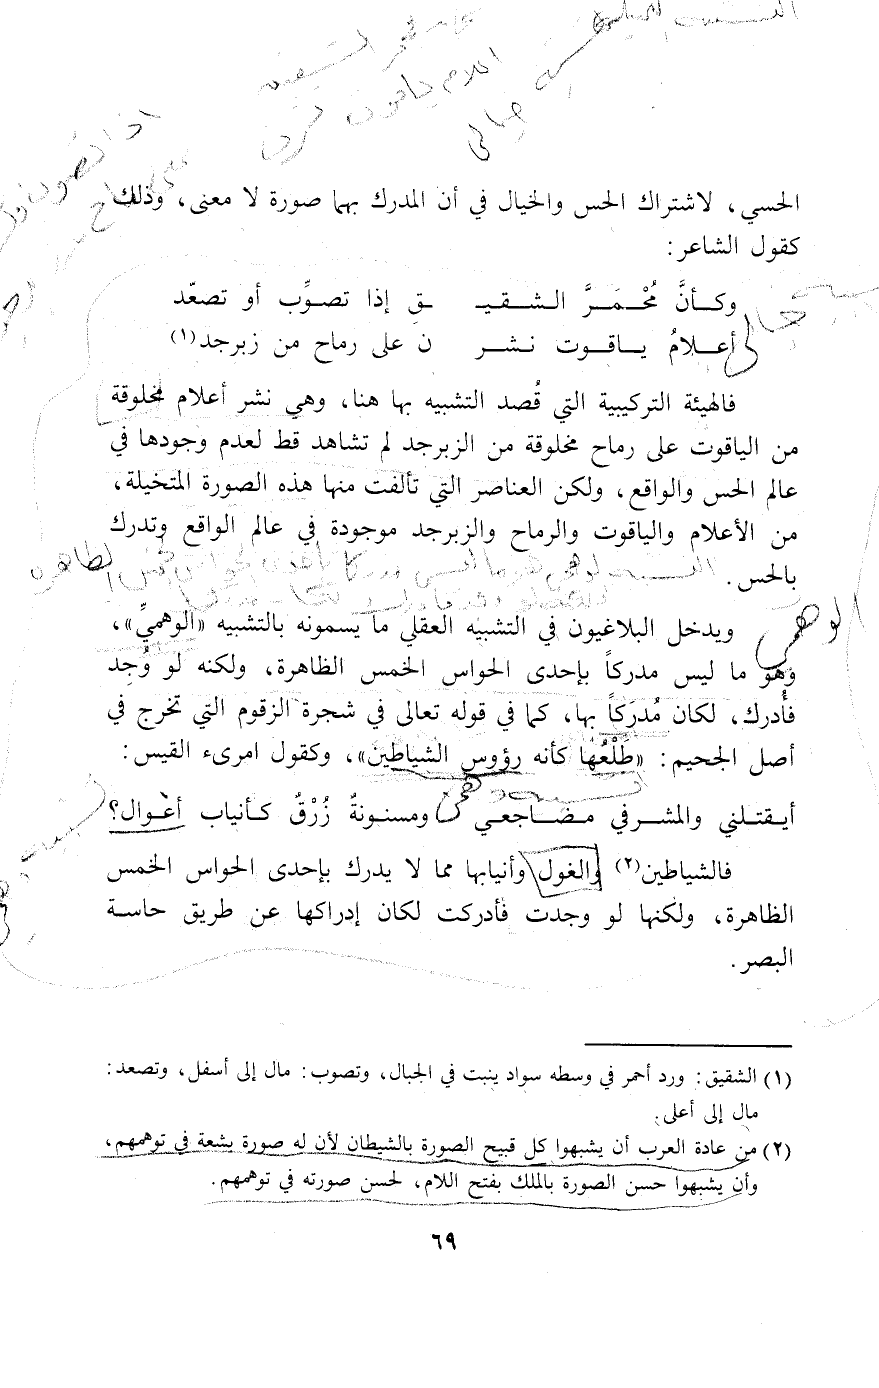 التشبيه الخيالي
محمر الشقيق
اعلام ياقوت نشرن
خيالي
اذا تصوب
على رماح
الحسي، لاشتراك الحس والخيال في أن المدرك بهما صورة لا معنى، وذلك
كقول الشاعر:
وكأنَّ مُحْمَرَّ الشقيـ ـق إذا تصوِّب أو تصعّد
أعلامُ ياقوت نشر ن على رماح من زبرجد(١)
فالهيئة التركيبية التي قُصد التشبيه بها هنا، وهي نشر أعلام مخلوقة
من الياقوت على رماح مخلوقة من الزبرجد لم تشاهد قط لعدم وجودها في
عالم الحس والواقع، ولكن العناصر التي تألفت منها هذه الصورة المتخيلة،
من الأعلام والياقوت والرماح والزبرجد موجودة في عالم الواقع وتدرك
بالحس.
الوهمي
ويدخل البلاغيون في التشبيه العقلي ما يسمونه بالتشبيه «الوهميِّ»،
وهو ما ليس مدركاً بإحدى الحواس الخمس الظاهرة، ولكنه لو وُجد
فأُدرك، لكان مُدرَكاً بها، كما في قوله تعالى في شجرة الزقوم التي تخرج في
أصل الجحيم: «طَلْعُها كأنه رؤوس الشياطين»، وكقول امرىء القيس:
تشبيه وهمي
أيقتلني والمشرفي مضاجعي ومسنونةٌ زُرْقٌ كأنياب أغوال؟
فالشياطين(٢) والغول وأنيابها مما لا يدرك بإحدى الحواس الخمس
الظاهرة، ولكنها لو وجدت فأدركت لكان إدراكها عن طريق حاسة
البصر.
(١) الشقيق: ورد أحمر في وسطه سواد ينبت في الجبال، وتصوب: مال إلى أسفل، وتصعد:
مال إلى أعلى.
(٢) من عادة العرب أن يشبهوا كل قبيح الصورة بالشيطان لأن له صورة بشعة في توهمهم،
وأن يشبهوا حسن الصورة بالملك بفتح اللام، لحسن صورته في توهمهم.
٦٩